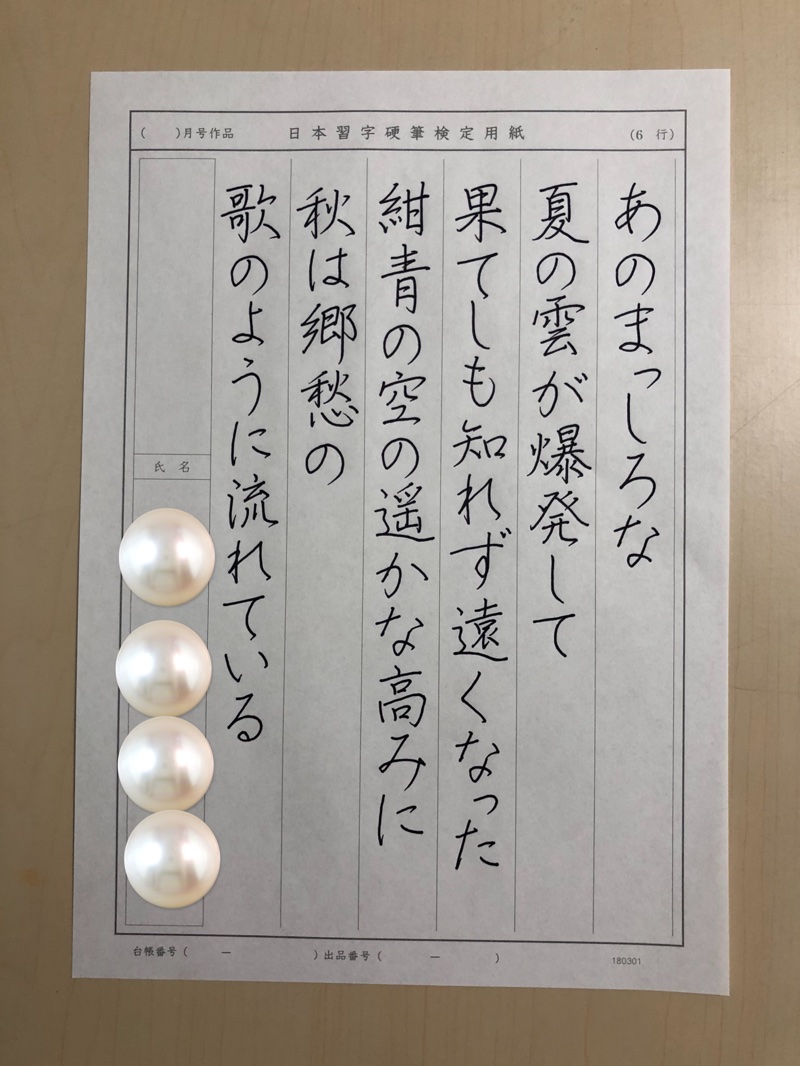 (　　)月号作品　日本習字硬筆検定用紙　(6 行)
あのまっしろな
夏の雲が爆発して
果てしも知れず遠くなった
紺青の空の遥かな高みに
秋は郷愁の
歌のように流れている
氏名
台帳番号(　ー　)出品番号(　ー　)
180301